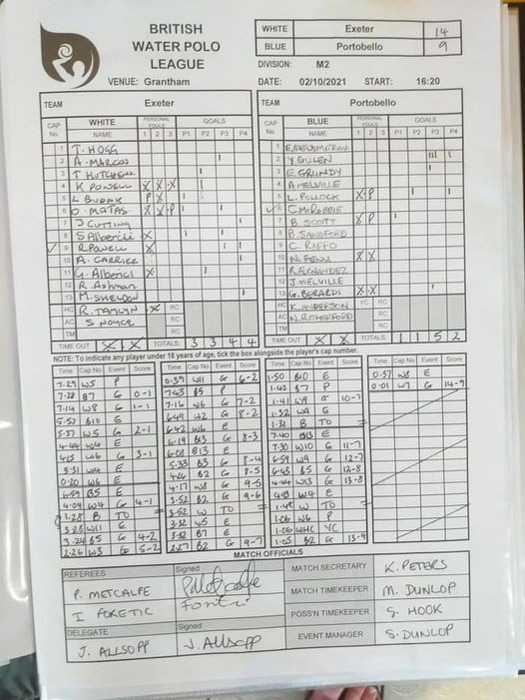 BRITISH
WATER POLO
LEAGUE
VENUE: Grantham
WHITE Exeter 14
BLUE Portobello 9
DIVISION: M2
DATE: 02/10/2021 START: 16:20
TEAM Exeter
CAP No. WHITE NAME PERSONAL FOULS 1 2 3 GOALS P1 P2 P3 P4
1 T. HOGG
2 A. MARCOS
3 T HUTCHEON
4 K POWELL X X X
5 L BURNK P X
6 O. MATAS X X P
7 J CUTTING
8 S Alberici X
9 R POWELL X
10 A. CARRIER
11 G. Alberici X
12 R. Ashman
13 M. SHELDON
HC R. TAMLYN X RC
AC S NOYCE RC
TM RC
TIME OUT X X TOTALS 3 3 4 4
TEAM Portobello
CAP No. BLUE NAME PERSONAL FOULS 1 2 3 GOALS P1 P2 P3 P4
2 Y GULEN
3 E. GRUNDY
4 A MELVILLE
5 L. POLLOCK X P
7 B SCOTT X P
8 B. SANDFORD
9 C. RAFFO
10 X X
11 R FERNANDEZ
12 J. MELVILLE
13 G. BERARDI X X
HC K. ANDERSON YC RC
AC N. RUTHERFORD RC
TM RC
TIME OUT X X TOTALS 1 1 5 2
NOTE: To indicate any player under 18 years of age, tick the box alongside the player's cap number.
Time Cap No Event Score
7.29 W5 P
7.28 B7 G 0-1
7.14 W8 G 1-1
5.52 B10 E
5.37 W5 G 2-1
4.44 W4 E
4.25 W6 G 3-1
3.31 W4 E
0.20 W6 E
6.59 B5 E
4.04 W4 G 4-1
1.28 B TO
3.28 W11 E
3.24 B5 G 4-2
2.26 W3 G 5-2
Time Cap No Event Score
0.39 W11 G 6-2
7.43 B5 P
7.16 W6 G 7-2
6.49 W2 G 8-2
6.42 W6 E
6.19 B13 G 8-3
6.08 B13 E
5.33 B3 G 8-4
4.26 B2 G 8-5
4.17 W8 G 9-5
3.52 B2 G 9-6
3.52 W TO
3.32 W5 E
3.32 B7 E
2.27 B2 G 9-7
Time Cap No Event Score
1.50 B10 E
1.42 B7 P
1.41 W9 G 10-7
1.32 W9 G
1.31 B TO
7.40 B13 E
7.30 W10 G 11-7
6.59 W9 G 12-7
6.43 B5 G 12-8
4.44 W13 G 13-8
4.13 W4 E
1.45 W TO
1.06 W6 P
1.06 WHC YC
1.05 B2 G 13-9
Time Cap No Event Score
0.57 W8 E
0.01 W7 G 14-9
MATCH OFFICIALS
REFEREES Signed
P. METCALFE P Metcalfe
I FORETIC Foretic
DELEGATE Signed
J. ALLSOPP J. Allsopp
MATCH SECRETARY K. PETERS
MATCH TIMEKEEPER M. DUNLOP
POSS'N TIMEKEEPER G. HOOK
EVENT MANAGER S. DUNLOP